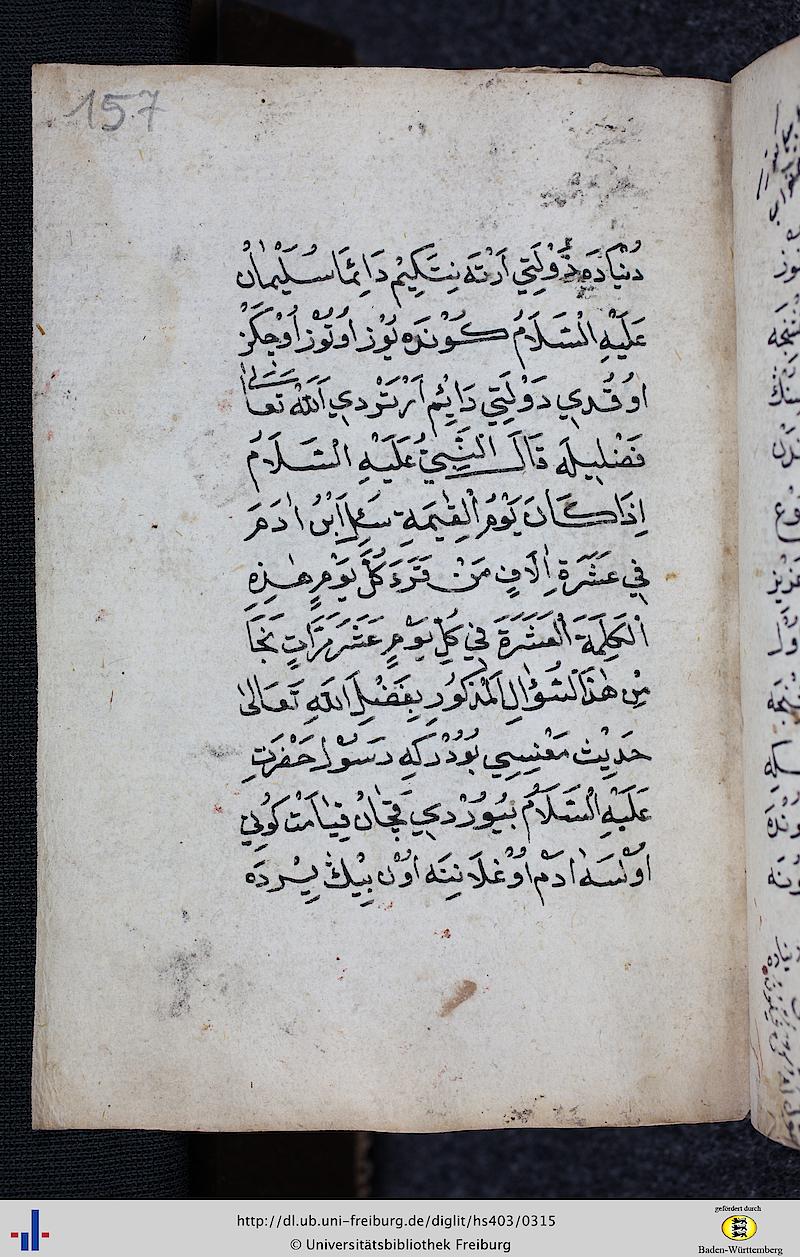 157
دُنْيَادَه دَوْلَتِي اَرْتَه نِتَكِيْم دَاۤئِمَا سُلَيْمَانْ
عَلَيْهِ السَّلَامُ كُوْنْدَه يُوْز اُوتُوْز اُوْچ كَزْ
اُوقُدِي دَوْلَتِي دَائِم اَرْتَرْدِي اَللّٰه تَعَالٰى
فَضْلِيلَه قَالَ النَّبِيُّ عَلَيْهِ السَّلَامُ
اِذَا كَانَ يَوْمُ الْقِيٰمَةِ سَئِلَ ابْنُ اٰدَمَ
فِي عَشَرَةِ اٰلَافٍ مَنْ قَرَءَ كُلَّ يَوْمٍ هٰذِهِ
الْكَلِمَةَ الْعَشَرَةَ فِي كُلِّ يَوْمٍ عَشَرَ مَرَّاتٍ نَجَا
مِنْ هٰذَا السُّؤٰالِ الْمَذْكُورِ بِفَضْلِ اللّٰهِ تَعَالٰى
حَدِيْث مَعْنِيسِي بُودُرْكِه رَسُوْل حَضْرَتِ
عَلَيْهِ السَّلَامُ بُيُورْدِي قَچَانْ قِيَامَتْ كُونِي
اُولْسَه اٰدَمْ اُوْغْلَانِنَه اُوْن بِيْڭ يِيرْدَه
http://dl.ub.uni-freiburg.de/diglit/hs403/0315
© Universitätsbibliothek Freiburg
gefördert durch
Baden-Württemberg